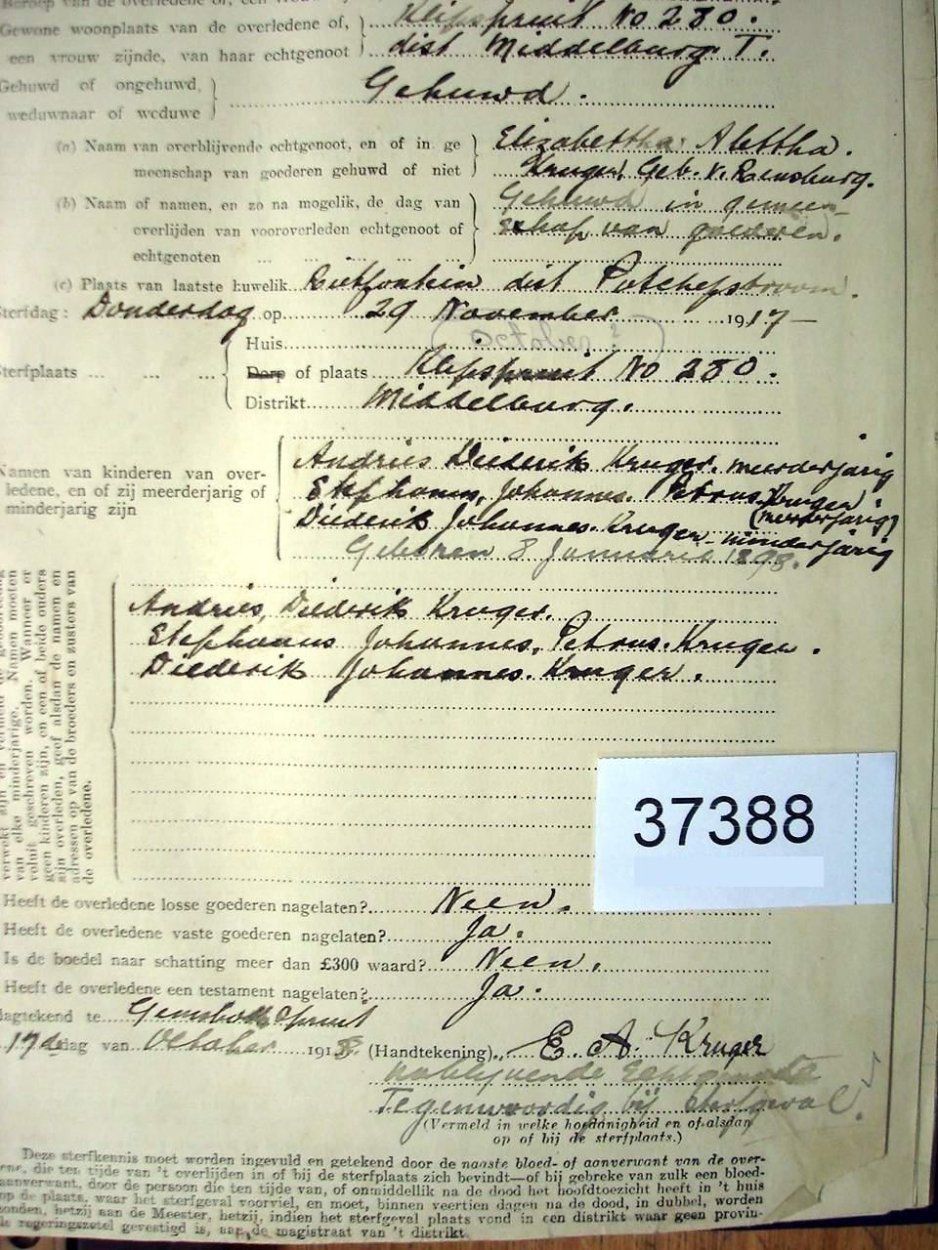 Beroep van de overledene of, een vrouw
Gewone woonplaats van de overledene of, Klipspruit No 280.
een vrouw zijnde, van haar echtgenoot dist Middelburg T.
Gehuwd of ongehuwd,
weduwnaar of weduwe Gehuwd.
(a) Naam van overblijvende echtgenoot, en of in ge Elizabettha Alettha.
meenschap van goederen gehuwd of niet Kruger, Geb. v. Rensburg.
(b) Naam of namen, en zo na mogelik, de dag van Gehuwd in gemeen-
overlijden van vooroverleden echtgenoot of schap van goederen.
echtgenoten ... ... ... ...
(c) Plaats van laatste huwelik Rietfontein dist Potchefstroom.
Sterfdag: Donderdag op 29 November 1917-
Huis
Sterfplaats ... ... ... Dorp of plaats Klipspruit No 280.
Distrikt Middelburg.
Namen van kinderen van over- Andries Diederik Kruger. meerderjarig
ledene, en of zij meerderjarig of Stephanus, Johannes. Petrus Kruger
minderjarig zijn (meerderjarig)
Diederik Johannes. Kruger minderjarig
Geboren 8 Januarie 1898.
van elke minderjarige. Namen moeten
voluit geschreven worden. Wanneer er
geen kinderen zijn, en een of beide ouders
zijn overleden, geef alsdan de namen en
adressen op van de broeders en zusters van
de overledene.
Andries, Diederik Kruger.
Stephanus Johannes, Petrus. Kruger.
Diederik Johannes. Kruger.
37388
Heeft de overledene losse goederen nagelaten? Neen.
Heeft de overledene vaste goederen nagelaten? Ja.
Is de boedel naar schatting meer dan £300 waard? Neen.
Heeft de overledene een testament nagelaten? Ja.
Dagtekend te
17de dag van October 1918 (Handtekening) E. A. Kruger
Tegenwoordig bij sterfgeval.
(Vermeld in welke hoedanigheid en of alsdan
op of bij de sterfplaats.)
Deze sterfkennis moet worden ingevuld en getekend door de naaste bloed- of aanverwant van de over-
ledene, die ten tijde van 't overlijden in of bij de sterfplaats zich bevindt—of bij gebreke van zulk een bloed-
aanverwant, door de persoon die ten tijde van, of onmiddellik na de dood het hoofdtoezicht heeft in 't huis
op de plaats, waar het sterfgeval voorviel, en moet, binnen veertien dagen na de dood, in dubbel, worden
zonden, hetzij aan de Meester, hetzij, indien het sterfgeval plaats vond in een distrikt waar geen provin-
le regeringszetel gevestigd is, aan de magistraat van 't distrikt.